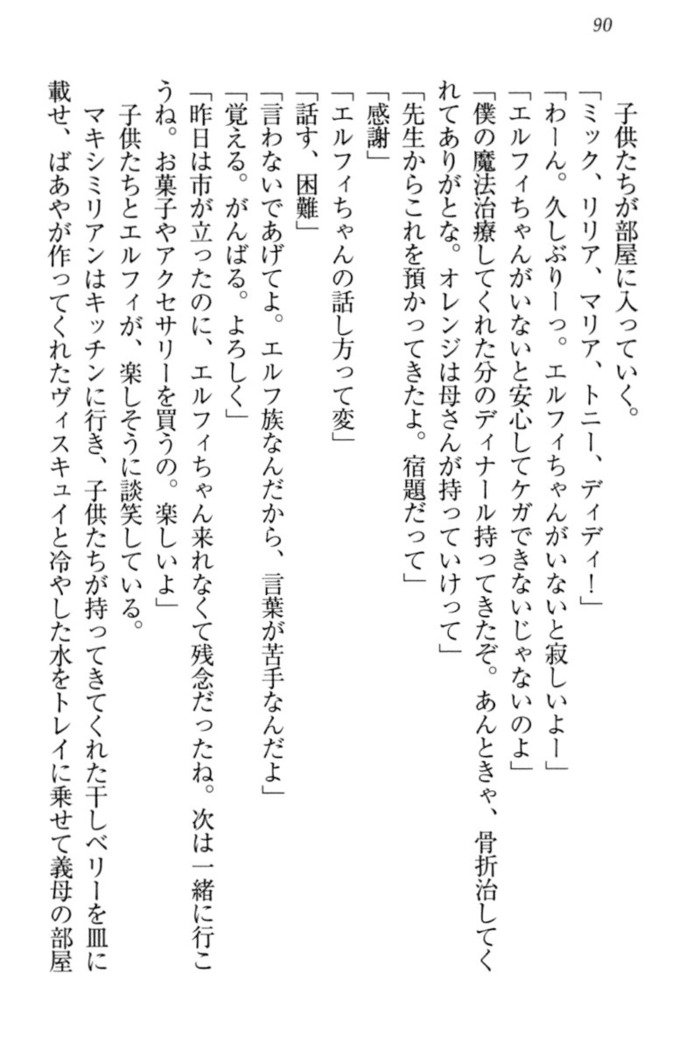 90
子供たちが部屋に入っていく。
「ミック、リリア、マリア、トニー、ディディ！」
「わーん。久しぶりーっ。エルフィちゃんがいないと寂しいよー」
「エルフィちゃんがいないと安心してケガできないじゃないのよ」
「僕の魔法治療してくれた分のディナール持ってきたぞ。あんときゃ、骨折治してく
れてありがとな。オレンジは母さんが持っていけって」
「先生からこれを預かってきたよ。宿題だって」
「感謝」
「エルフィちゃんの話し方って変」
「話す、困難」
「言わないであげてよ。エルフ族なんだから、言葉が苦手なんだよ」
「覚える。がんばる。よろしく」
「昨日は市が立ったのに、エルフィちゃん来れなくて残念だったね。次は一緒に行こ
うね。お菓子やアクセサリーを買うの。楽しいよ」
子供たちとエルフィが、楽しそうに談笑している。
マキシミリアンはキッチンに行き、子供たちが持ってきてくれた干しベリーを皿に
載せ、ばあやが作ってくれたヴィスキュイと冷やした水をトレイに乗せて義母の部屋